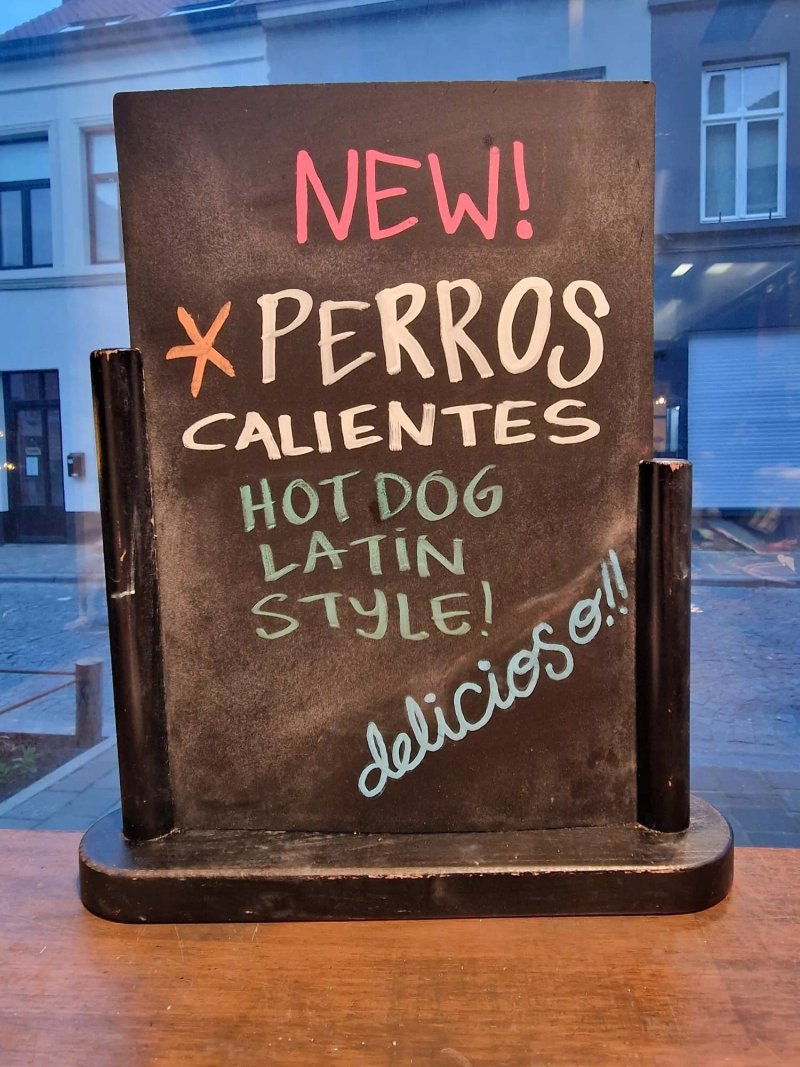 NEW!
* PERROS
CALIENTES
HOT DOG
LATIN
STYLE!
delicioso!!